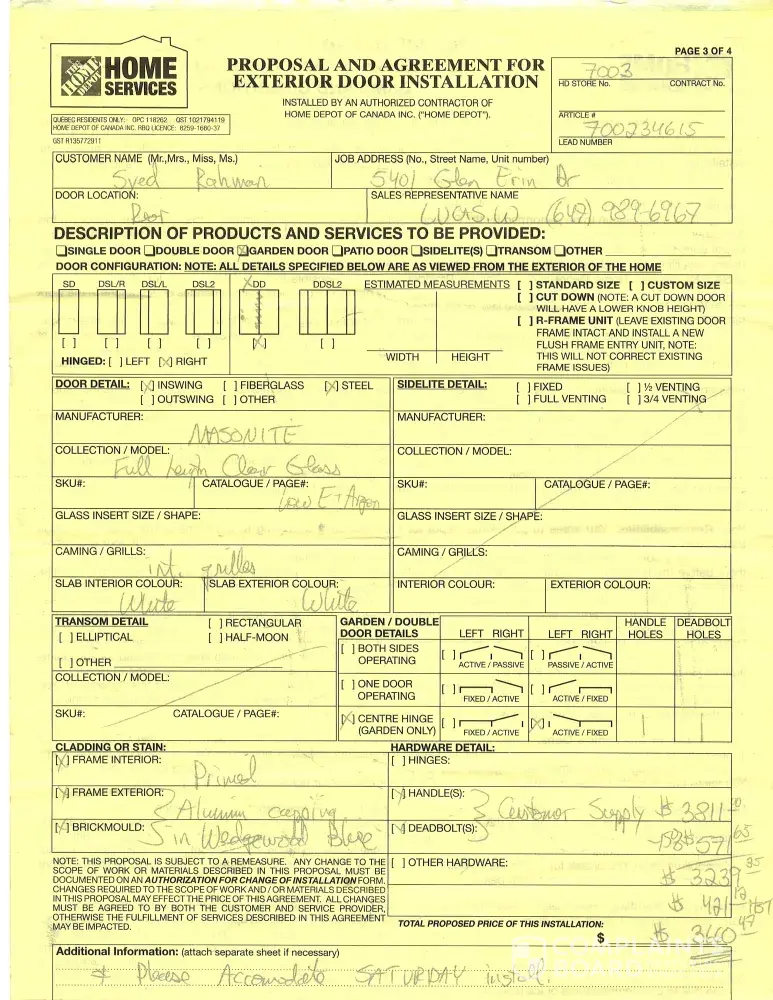 PAGE 3 OF 4
THE HOME DEPOT HOME SERVICES
PROPOSAL AND AGREEMENT FOR
EXTERIOR DOOR INSTALLATION
INSTALLED BY AN AUTHORIZED CONTRACTOR OF
HOME DEPOT OF CANADA INC. ("HOME DEPOT").
7003
HD STORE No. CONTRACT No.
ARTICLE #
700234615
LEAD NUMBER
QUÉBEC RESIDENTS ONLY: OPC 118262 QST 1021794119
HOME DEPOT OF CANADA INC. RBQ LICENCE: 8259-1660-37
GST R135772911
CUSTOMER NAME (Mr.,Mrs., Miss, Ms.) JOB ADDRESS (No., Street Name, Unit number)
Syed Rahman 5401 Glen Erin Dr
DOOR LOCATION: SALES REPRESENTATIVE NAME
Rear LUCAS.W (647) 989-6967
DESCRIPTION OF PRODUCTS AND SERVICES TO BE PROVIDED:
SINGLE DOOR DOUBLE DOOR GARDEN DOOR PATIO DOOR SIDELITE(S) TRANSOM OTHER
DOOR CONFIGURATION: NOTE: ALL DETAILS SPECIFIED BELOW ARE AS VIEWED FROM THE EXTERIOR OF THE HOME
SD DSL/R DSL/L DSL2 DD DDSL2 ESTIMATED MEASUREMENTS
[ ] STANDARD SIZE [ ] CUSTOM SIZE
[ ] CUT DOWN (NOTE: A CUT DOWN DOOR
WILL HAVE A LOWER KNOB HEIGHT)
[ ] R-FRAME UNIT (LEAVE EXISTING DOOR
FRAME INTACT AND INSTALL A NEW
FLUSH FRAME ENTRY UNIT, NOTE:
THIS WILL NOT CORRECT EXISTING
FRAME ISSUES)
[ ] [ ] [ ] [ ] [X] [ ]
WIDTH HEIGHT
HINGED: [ ] LEFT [X] RIGHT
DOOR DETAIL: [X] INSWING [ ] FIBERGLASS [X] STEEL
[ ] OUTSWING [ ] OTHER
SIDELITE DETAIL: [ ] FIXED [ ] ½ VENTING
[ ] FULL VENTING [ ] 3/4 VENTING
MANUFACTURER: MANUFACTURER:
MASONITE
COLLECTION / MODEL: COLLECTION / MODEL:
Full Length Clear Glass
SKU#: CATALOGUE / PAGE#: SKU#: CATALOGUE / PAGE#:
Low E + Argon
GLASS INSERT SIZE / SHAPE: GLASS INSERT SIZE / SHAPE:
CAMING / GRILLS: CAMING / GRILLS:
int. grilles
SLAB INTERIOR COLOUR: SLAB EXTERIOR COLOUR: INTERIOR COLOUR: EXTERIOR COLOUR:
White White
TRANSOM DETAIL [ ] RECTANGULAR
[ ] ELLIPTICAL [ ] HALF-MOON
[ ] OTHER
COLLECTION / MODEL:
SKU#: CATALOGUE / PAGE#:
GARDEN / DOUBLE
DOOR DETAILS LEFT RIGHT LEFT RIGHT HANDLE HOLES DEADBOLT HOLES
[ ] BOTH SIDES
OPERATING [ ] ACTIVE / PASSIVE [ ] PASSIVE / ACTIVE
[ ] ONE DOOR
OPERATING [ ] FIXED / ACTIVE [ ] ACTIVE / FIXED
[X] CENTRE HINGE
(GARDEN ONLY) [ ] FIXED / ACTIVE [X] ACTIVE / FIXED
CLADDING OR STAIN: HARDWARE DETAIL:
[X] FRAME INTERIOR: Primed [ ] HINGES:
[X] FRAME EXTERIOR: Alumm capping [X] HANDLE(S): Customer Supply $ 3811
[X] BRICKMOULD: in Wedgewood Blue [X] DEADBOLT(S): 571 65
NOTE: THIS PROPOSAL IS SUBJECT TO A REMEASURE. ANY CHANGE TO THE
SCOPE OF WORK OR MATERIALS DESCRIBED IN THIS PROPOSAL MUST BE
DOCUMENTED ON AN AUTHORIZATION FOR CHANGE OF INSTALLATION FORM.
CHANGES REQUIRED TO THE SCOPE OF WORK AND / OR MATERIALS DESCRIBED
IN THIS PROPOSAL MAY EFFECT THE PRICE OF THIS AGREEMENT. ALL CHANGES
MUST BE AGREED TO BY BOTH THE CUSTOMER AND SERVICE PROVIDER,
OTHERWISE THE FULFILLMENT OF SERVICES DESCRIBED IN THIS AGREEMENT
MAY BE IMPACTED.
[ ] OTHER HARDWARE:
$ 3239 35
$ 421 12 HST
TOTAL PROPOSED PRICE OF THIS INSTALLATION:
$ $ 3660 47
Additional Information: (attach separate sheet if necessary)
* Please Accomodate SATURDAY install.
COMPLAINTS
BOARD